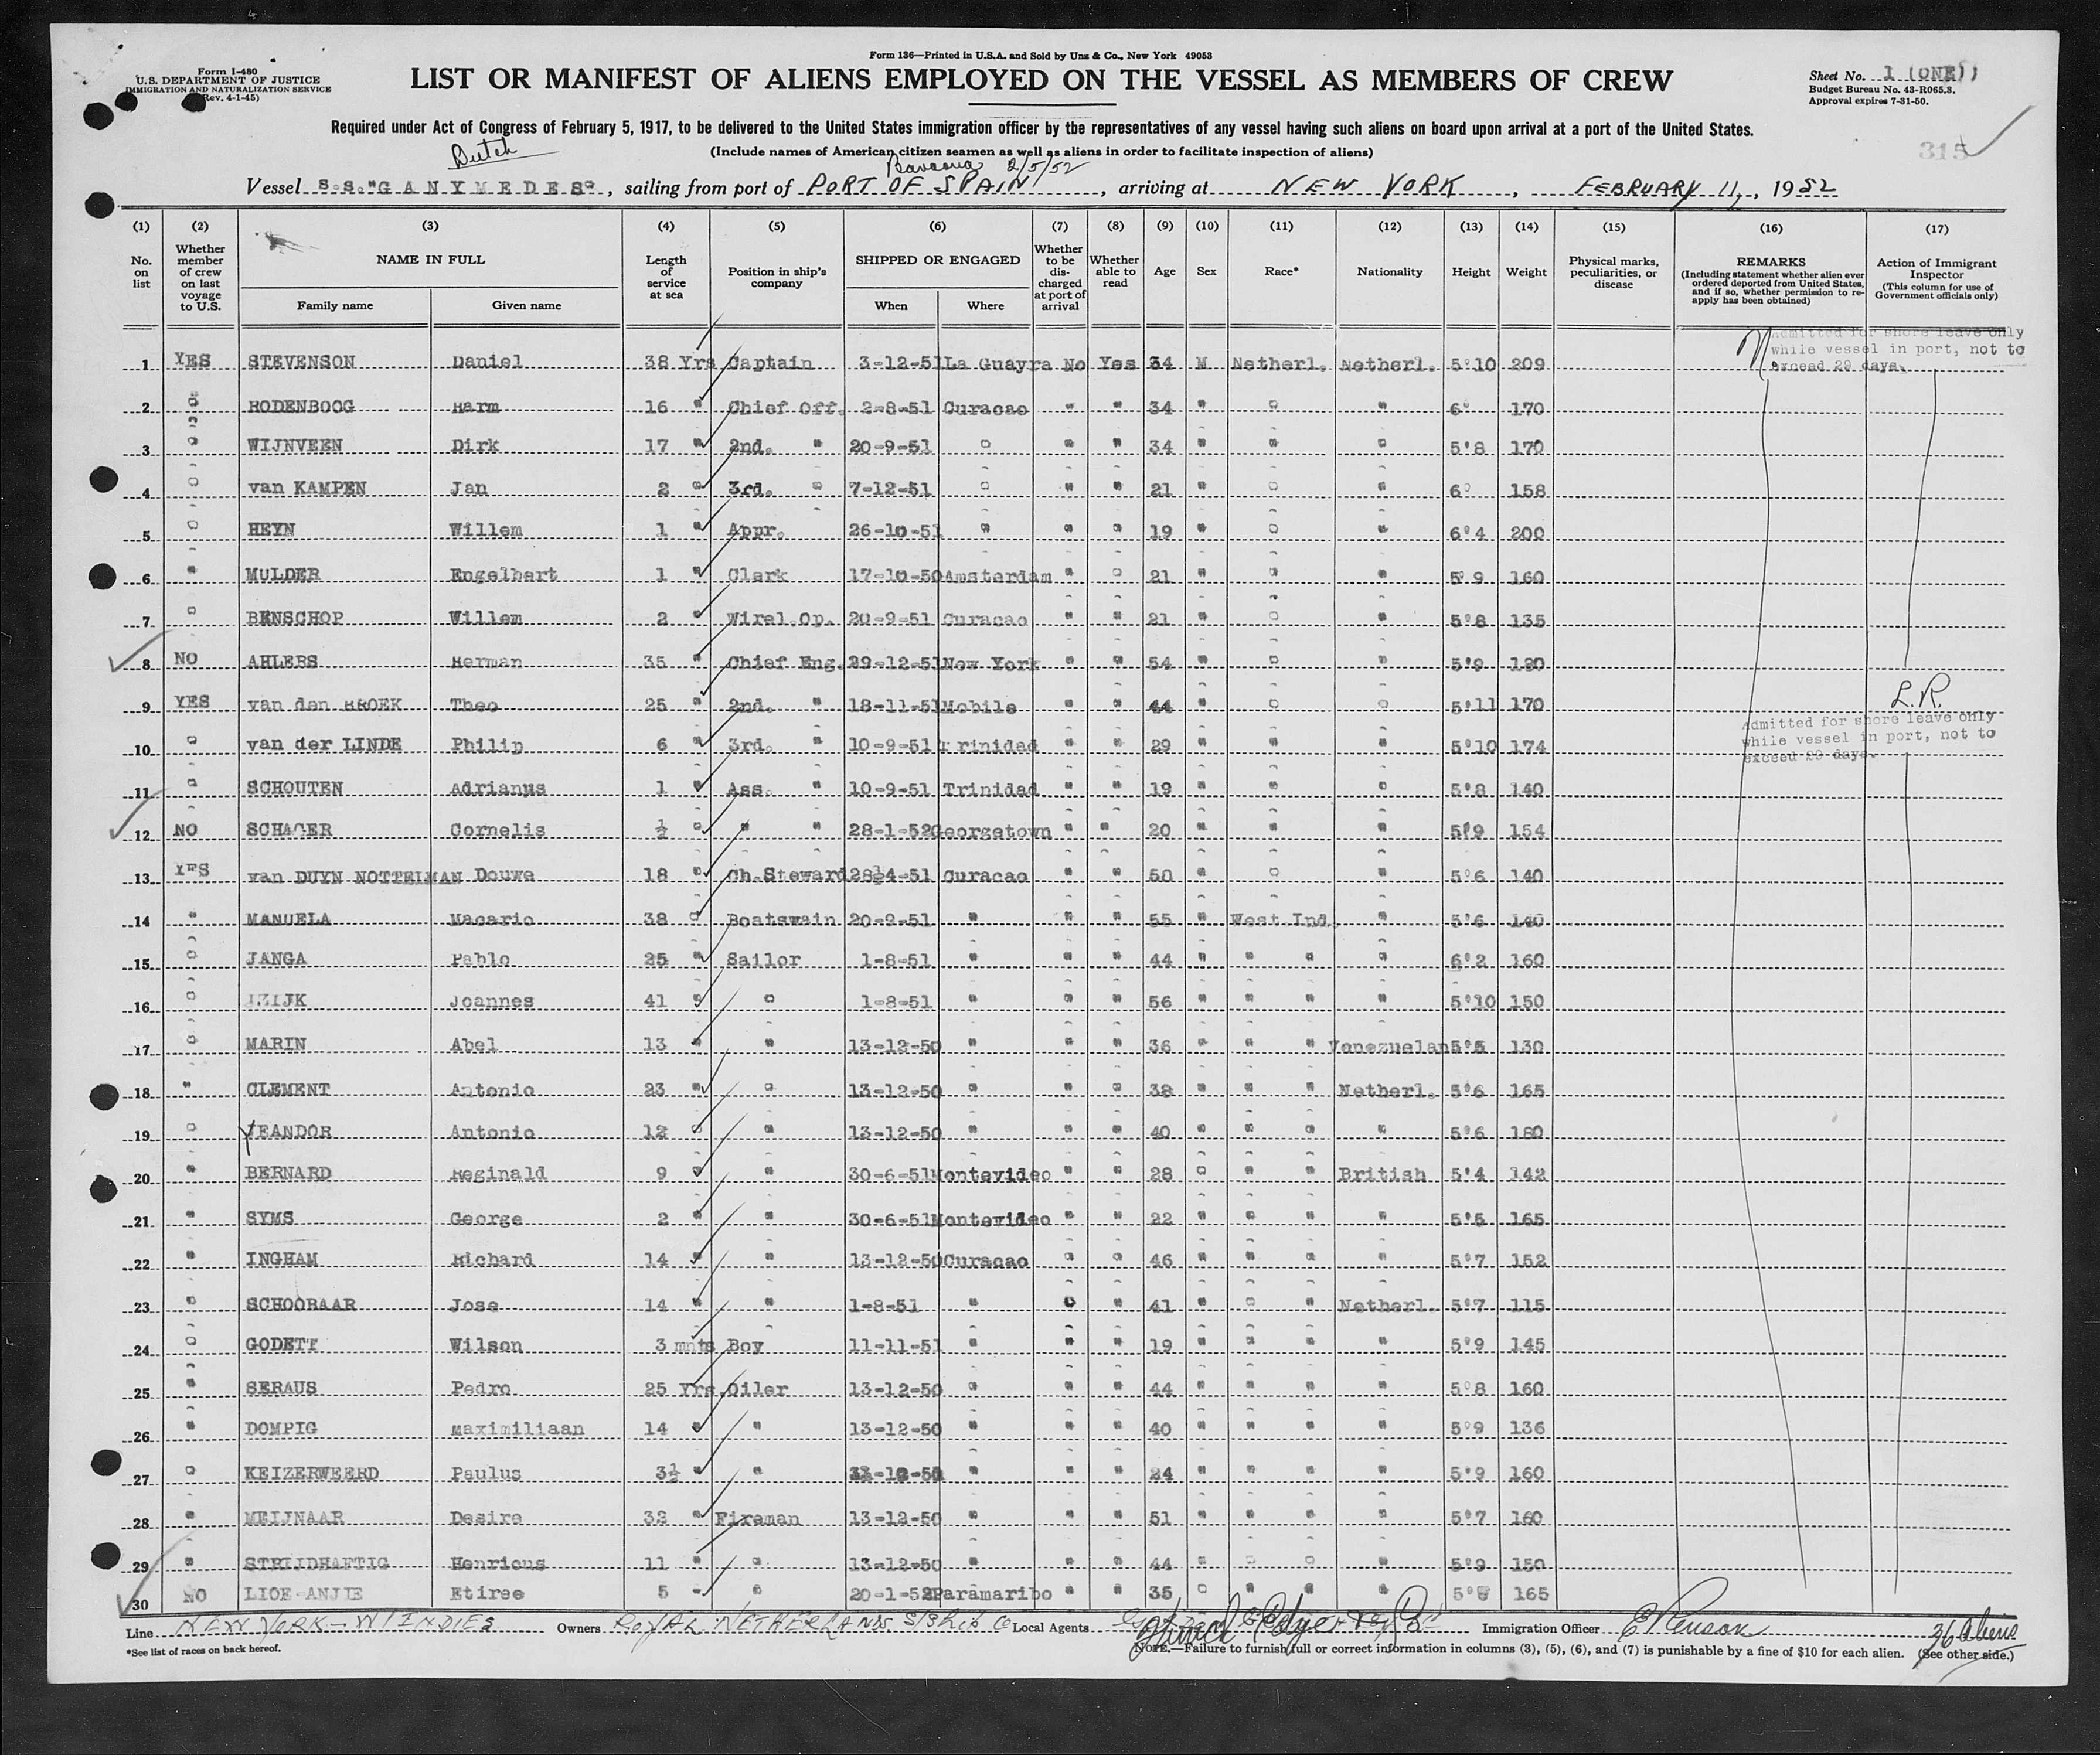 Form I-480
U.S. DEPARTMENT OF JUSTICE
IMMIGRATION AND NATURALIZATION SERVICE
(Rev. 4-1-45)
Form 136—Printed in U.S.A. and Sold by Unz & Co., New York 49053
LIST OR MANIFEST OF ALIENS EMPLOYED ON THE VESSEL AS MEMBERS OF CREW
Sheet No. 1 (ONE)
Budget Bureau No. 43-R065.3.
Approval expires 7-31-50.
Required under Act of Congress of February 5, 1917, to be delivered to the United States immigration officer by the representatives of any vessel having such aliens on board upon arrival at a port of the United States.
(Include names of American citizen seamen as well as aliens in order to facilitate inspection of aliens)
315
Dutch
2/5/52
Vessel S.S. "GANYMEDES", sailing from port of PORT OF SPAIN, arriving at NEW YORK, FEBRUARY 11, 1952
(1) (2) (3) (4) (5) (6) (7) (8) (9) (10) (11) (12) (13) (14) (15) (16) (17)
No. on list
Whether member of crew on last voyage to U.S.
NAME IN FULL
Family name Given name
Length of service at sea
Position in ship's company
SHIPPED OR ENGAGED
When Where
Whether to be discharged at port of arrival
Whether able to read
Age
Sex
Race*
Nationality
Height
Weight
Physical marks, peculiarities, or disease
REMARKS
(Including statement whether alien ever ordered deported from United States, and if so, whether permission to reapply has been obtained)
Action of Immigrant Inspector
(This column for use of Government officials only)
Admitted for shore leave only
while vessel in port, not to
exceed 29 days.
1 YES STEVENSON Daniel 38 Yrs Captain 3-12-51 La Guayra No Yes 34 M Netherl. Netherl. 5'10 209
2 " RODENBOOG Harm 16 " Chief Off. 2-8-51 Curacao " " 34 " " " 6' 170
3 " WIJNVEEN Dirk 17 " 2nd. " 20-9-51 " " " 34 " " " 5'8 170
4 " van KAMPEN Jan 2 " 3rd. " 7-12-51 " " " 21 " " " 6' 158
5 " HEYN Willem 1 " Appr. 26-10-51 " " " 19 " " " 6'4 200
6 " MULDER Engelbert 1 " Clerk 17-10-50 Amsterdam " " 21 " " " 5'9 160
7 " BENSCHOP Willem 2 " Wirel.Op. 20-9-51 Curacao " " 21 " " " 5'8 135
8 NO AHLERS Herman 35 " Chief Eng. 29-12-51 New York " " 54 " " " 5'9
9 YES van den BROEK Theo 25 " 2nd. " 18-11-51 Mobile " " 44 " " " 5'11 170 L.R.
Admitted for shore leave only
while vessel in port, not to
exceed 29 days.
10 " van der LINDE Philip 6 " 3rd. " 10-9-51 Trinidad " " 29 " " " 5'10 174
11 " SCHOUTEN Adrianus 1 " Ass. " 10-9-51 Trinidad " " 19 " " " 5'8 140
12 NO SCHAGER Cornelis ½ " " " 28-1-52 Georgetown " " 20 " " " 5'9 154
13 YES van DUYN NOTTELMAN Douwe 18 " Ch.Steward Curacao " " 50 " " " 5'6 140
14 " MANUELA Macario 38 " Boatswain 20-9-51 " " " 55 " West.Ind. " 5'6 140
15 " JANGA Pablo 25 " Sailor 1-8-51 " " " 44 " " " " 6'2 160
16 " Joannes 41 " " 1-8-51 " " " 56 " " " " 5'10 150
17 " MARIN Abel 13 " " 13-12-50 " " " 36 " " " Venezuelan 5'5 130
18 " CLEMENT Antonio 23 " " 13-12-50 " " " 38 " " " Netherl. 5'6 165
19 " JEANDOR Antonio 12 " " 13-12-50 " " " 40 " " " " 5'6 180
20 " BERNARD Reginald 9 " " 30-6-51 Montevideo " " 28 " " " British 5'4 142
21 " SYMS George 2 " " 30-6-51 Montevideo " " 22 " " " " 5'5 165
22 " INGHAM Richard 14 " " 13-12-50 Curacao " " 46 " " " " 5'7 152
23 " SCHOOBAAR Jose 14 " " 1-8-51 " " " 41 " " " Netherl. 5'7 115
24 " GODETT Wilson 3 mnts Boy 11-11-51 " " " 19 " " " " 5'9 145
25 " SERAUS Pedro 25 Yrs. Oiler 13-12-50 " " " 44 " " " " 5'8 160
26 " DOMPIG Maximiliaan 14 " " 13-12-50 " " " 40 " " " " 5'9 136
27 " KEIZERWEERD Paulus 3½ " " " " " 24 " " " " 5'9 160
28 " MEIJNAAR Desire 32 " Fireman 13-12-50 " " " 51 " " " " 5'7 160
29 " STRIJDHAFTIG Henricus 11 " " 13-12-50 " " " 44 " " " " 5'9 150
30 NO LIOE-ANJIE Etiree 5 " " 20-1-52 Paramaribo " " 35 " " " " 165
Line NEW YORK - W INDIES Owners ROYAL NETHERLANDS S/Ship Co Local Agents Immigration Officer 36 Aliens
*See list of races on back hereof.
NOTE.—Failure to furnish full or correct information in columns (3), (5), (6), and (7) is punishable by a fine of $10 for each alien. (See other side.)